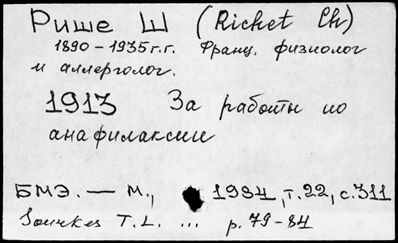 Рише Ш (Richet Ch)
1890-1935г.г. Франц. физиолог
и аллерголог.
1913 За работы по
анафилаксии
БМЭ. — М., 1984, т.22, с.311
Sourkes T.L. ... p. 79-84